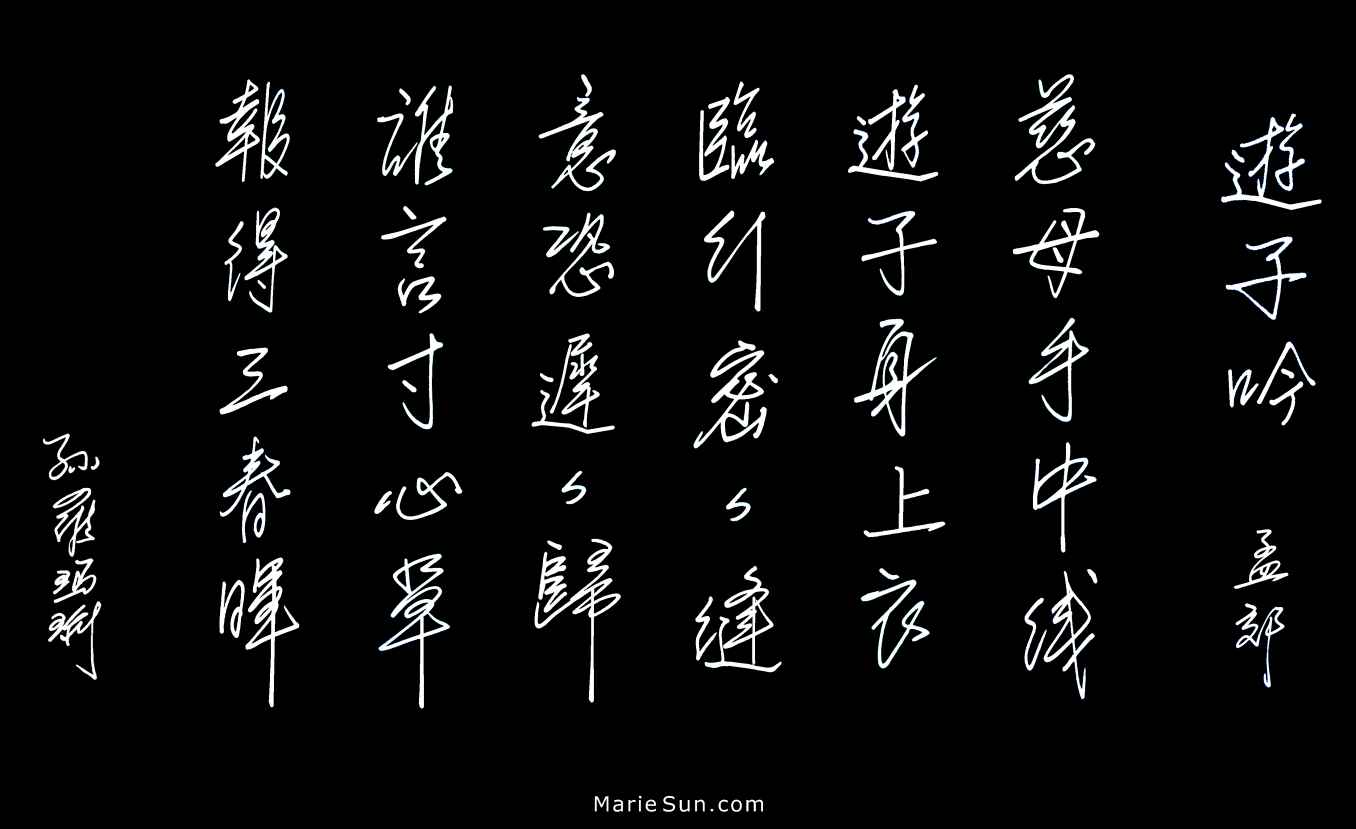 遊子吟 孟郊
慈母手中线
遊子身上衣
臨行密々縫
意恐遲々歸
誰言寸心草
報得三春暉
孙羅瑪琍
MarieSun.com